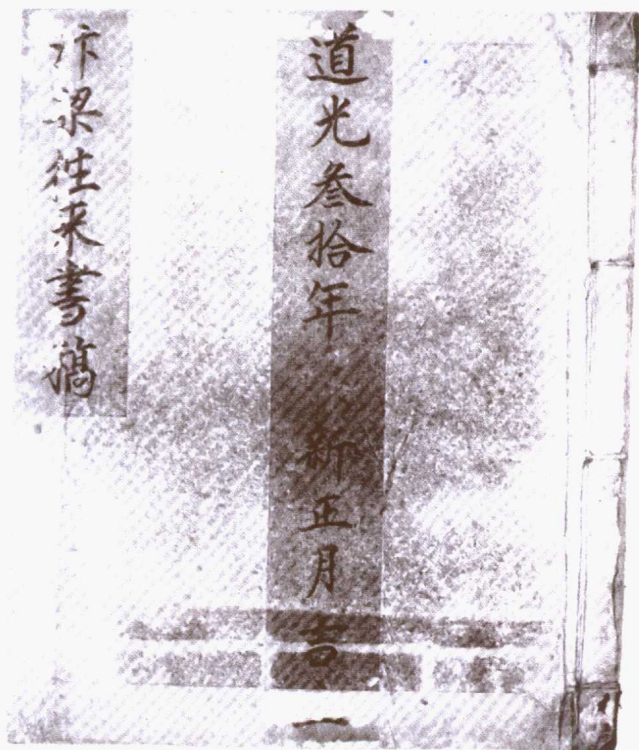 道光叁拾年 新正月吉
汴梁徃来書稿